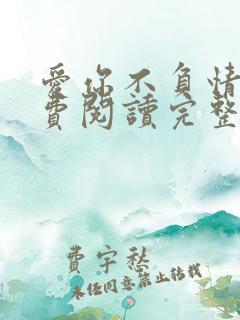 愛你不負情
費閱讀完整
費宇愁
未經同意禁止轉載